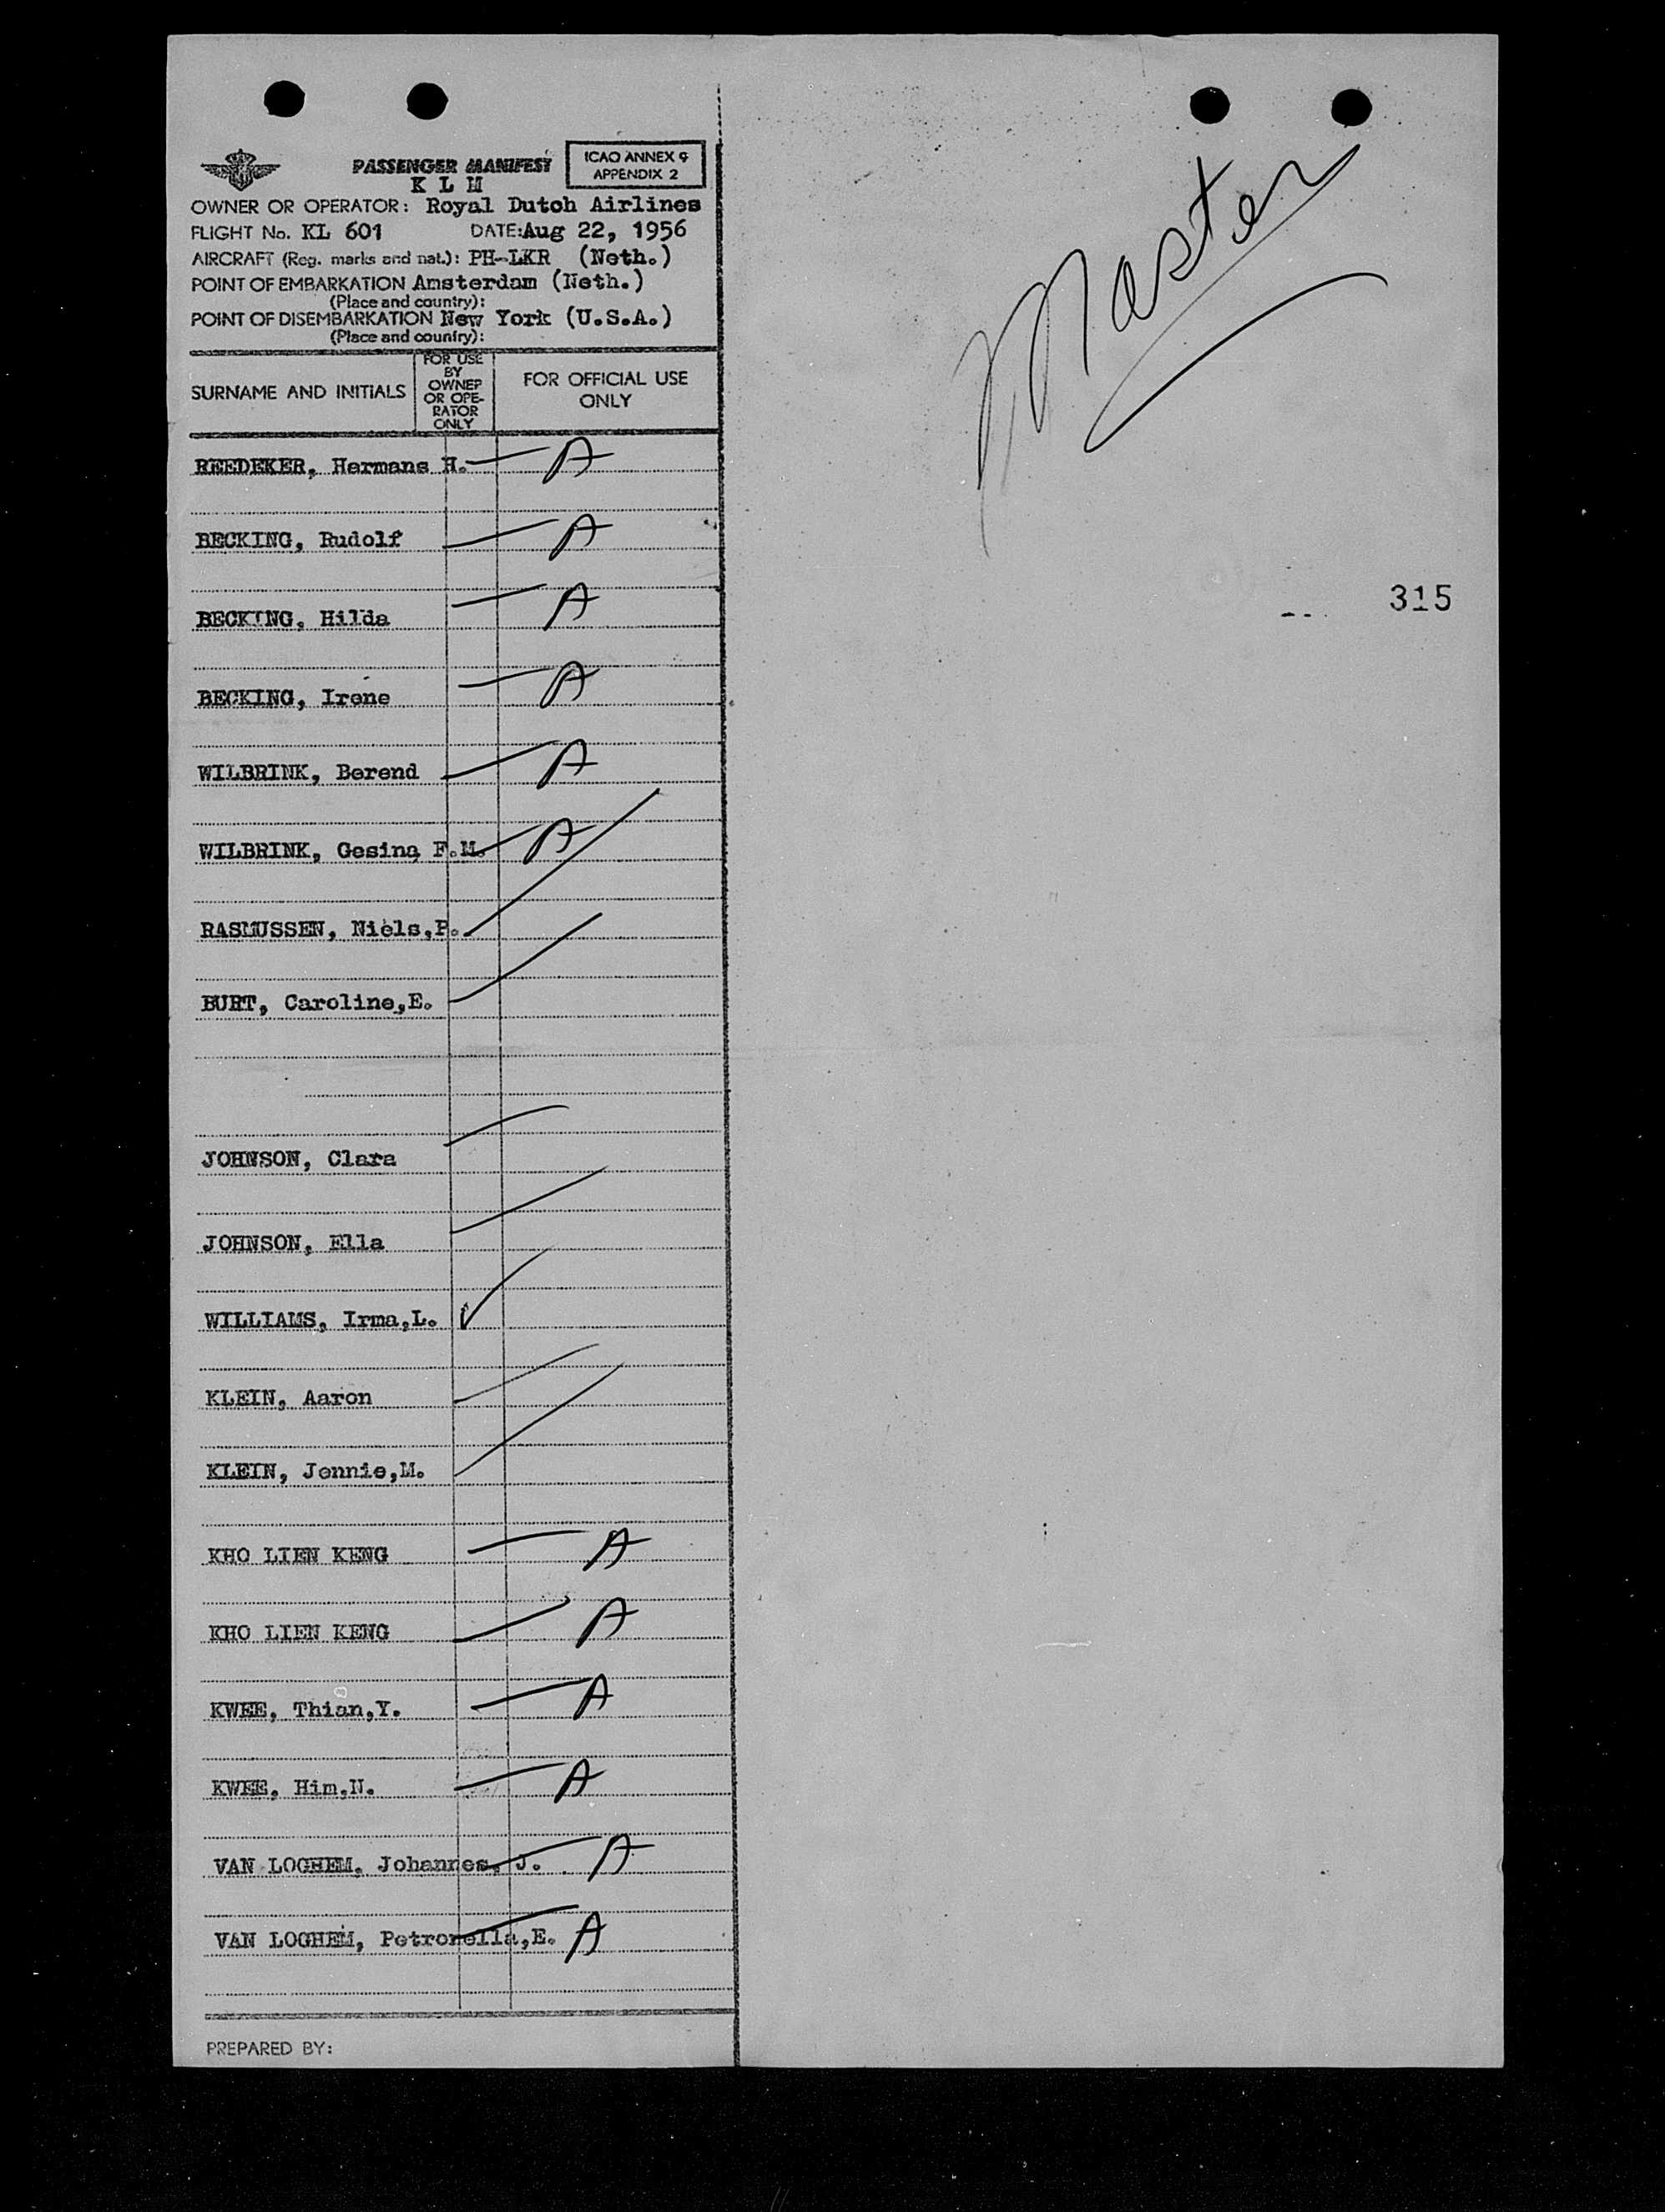 PASSENGER MANIFEST
ICAO ANNEX 9
APPENDIX 2
K L M
OWNER OR OPERATOR: Royal Dutch Airlines
FLIGHT No. KL 601 DATE:Aug 22, 1956
AIRCRAFT (Reg. marks and nat.): PH-LKR (Neth.)
POINT OF EMBARKATION Amsterdam (Neth.)
(Place and country):
POINT OF DISEMBARKATION New York (U.S.A.)
(Place and country):
SURNAME AND INITIALS
FOR USE
BY
OWNER
OR OPE-
RATOR
ONLY
FOR OFFICIAL USE
ONLY
REEDEKER, Hermans H. A
BECKING, Rudolf A
BECKING, Hilda A
BECKING, Irene A
WILBRINK, Berend A
WILBRINK, Gesina F.M. A
RASMUSSEN, Niels,P.
BURT, Caroline,E.
JOHNSON, Clara
JOHNSON, Ella
WILLIAMS, Irma,L.
KLEIN, Aaron
KLEIN, Jennie,M.
KHO LIEN KENG A
KHO LIEN KENG A
KWEE, Thian,Y. A
KWEE, Him,N. A
VAN LOGHEM, Johannes, J. A
VAN LOGHEM, Petronella,E. A
PREPARED BY:
Master
315